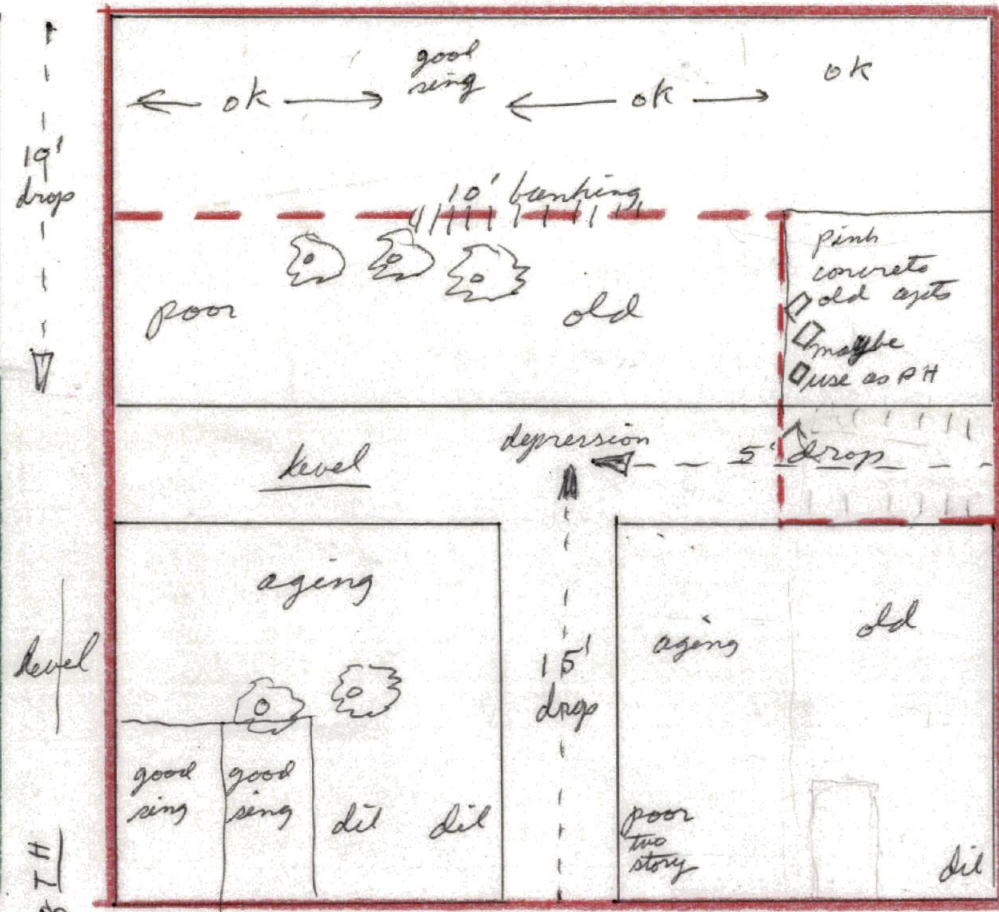 good
sing
ok
ok
ok
19'
drop
10' banking
poor
old
pink
concrete
old apts
maybe
use as PH
depression
level
5' drop
aging
level
15'
drop
aging
old
good
sing
good
sing
dil
dil
poor
two
story
dil